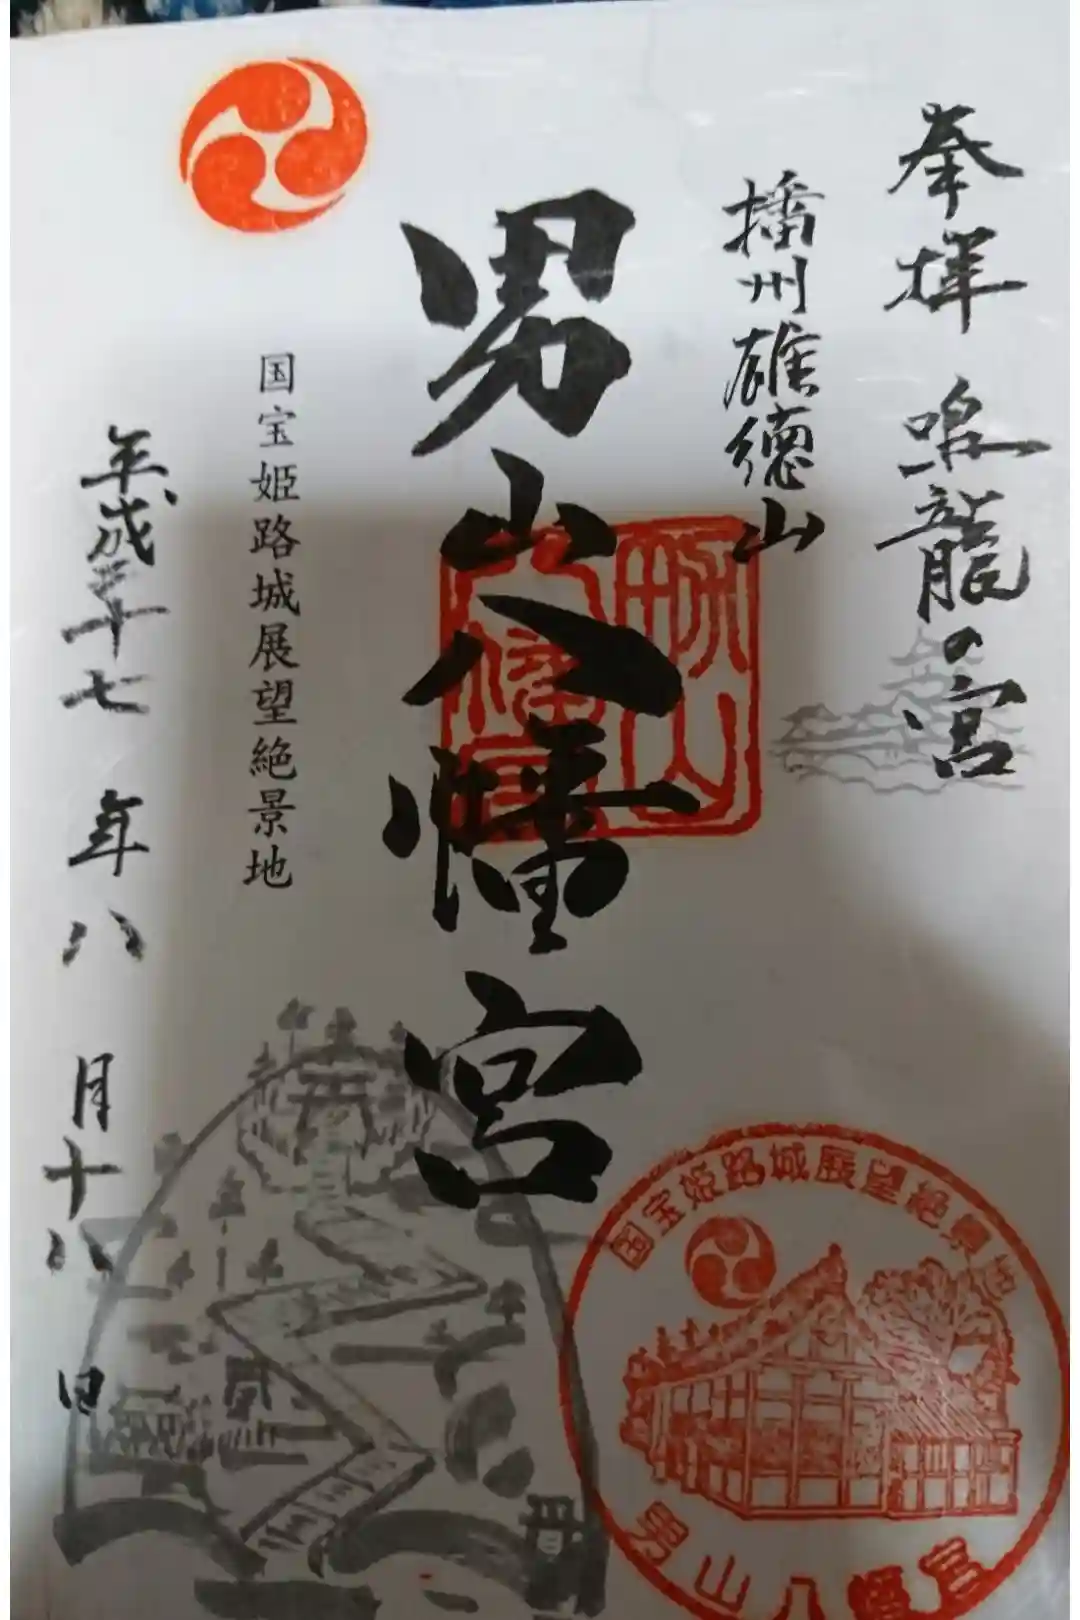 奉拝 鳴龍の宮
播州雄徳山
男山八幡宮
国宝姫路城展望絶景地
平成二十七年八月十八日
男山
八幡宮
国宝姫路城展望絶景地
男山八幡宮